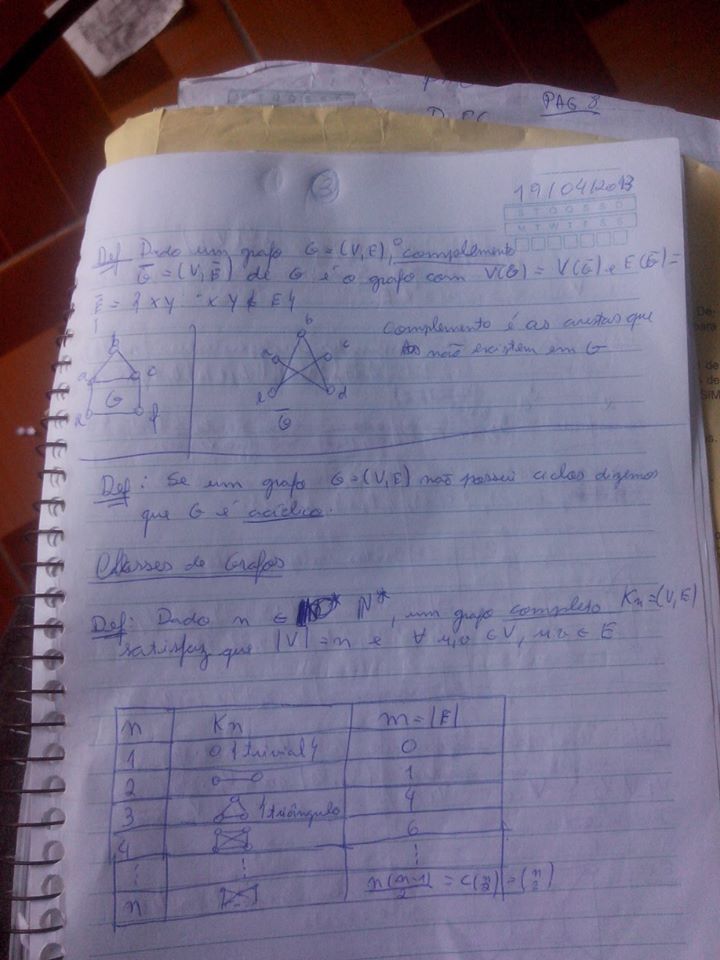 PAG 8
3
19/04/2013
S T Q Q S S D
S M T W T F S
Def Dado um grafo G = (V, E), o complemento
G̅ = (V, E̅) de G é o grafo com V(G̅) = V(G) e E(G̅) =
E̅ = { xy : xy ∉ E }
b
a c
G
e f
b
a c
e d
G̅
Complemento é as arestas que
não existem em G
Def: Se um grafo G = (V, E) não possui ciclos dizemos
que G é acíclico.
Classes de Grafos
Def: Dado n ∈ N*, um grafo completo Kn = (V, E)
satisfaz que |V| = n e ∀ u, v ∈ V, uv ∈ E
n Kn m = |E|
1 {trivial} 0
2 1
3 {triângulo 4
4 6
⋮ ⋮ ⋮
n n(n-1)/2 = C(n/2) = (n 2)